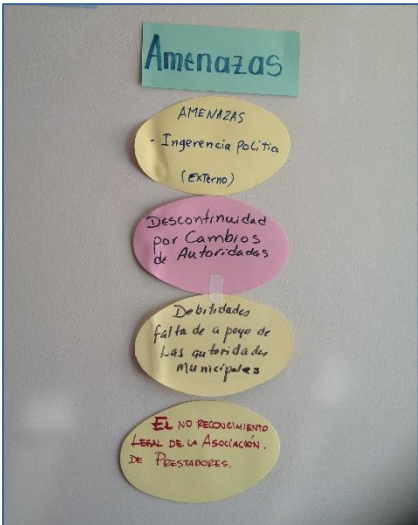 Amenazas
AMENAZAS
- Ingerencia Política
(Externo)
Descontinuidad
por Cambios
de Autoridades
Debilidades
falta de apoyo de
Las autoridades
Municipales
EL NO RECONOCIMIENTO
LEGAL DE LA ASOCIACIÓN.
DE PRESTADORES.